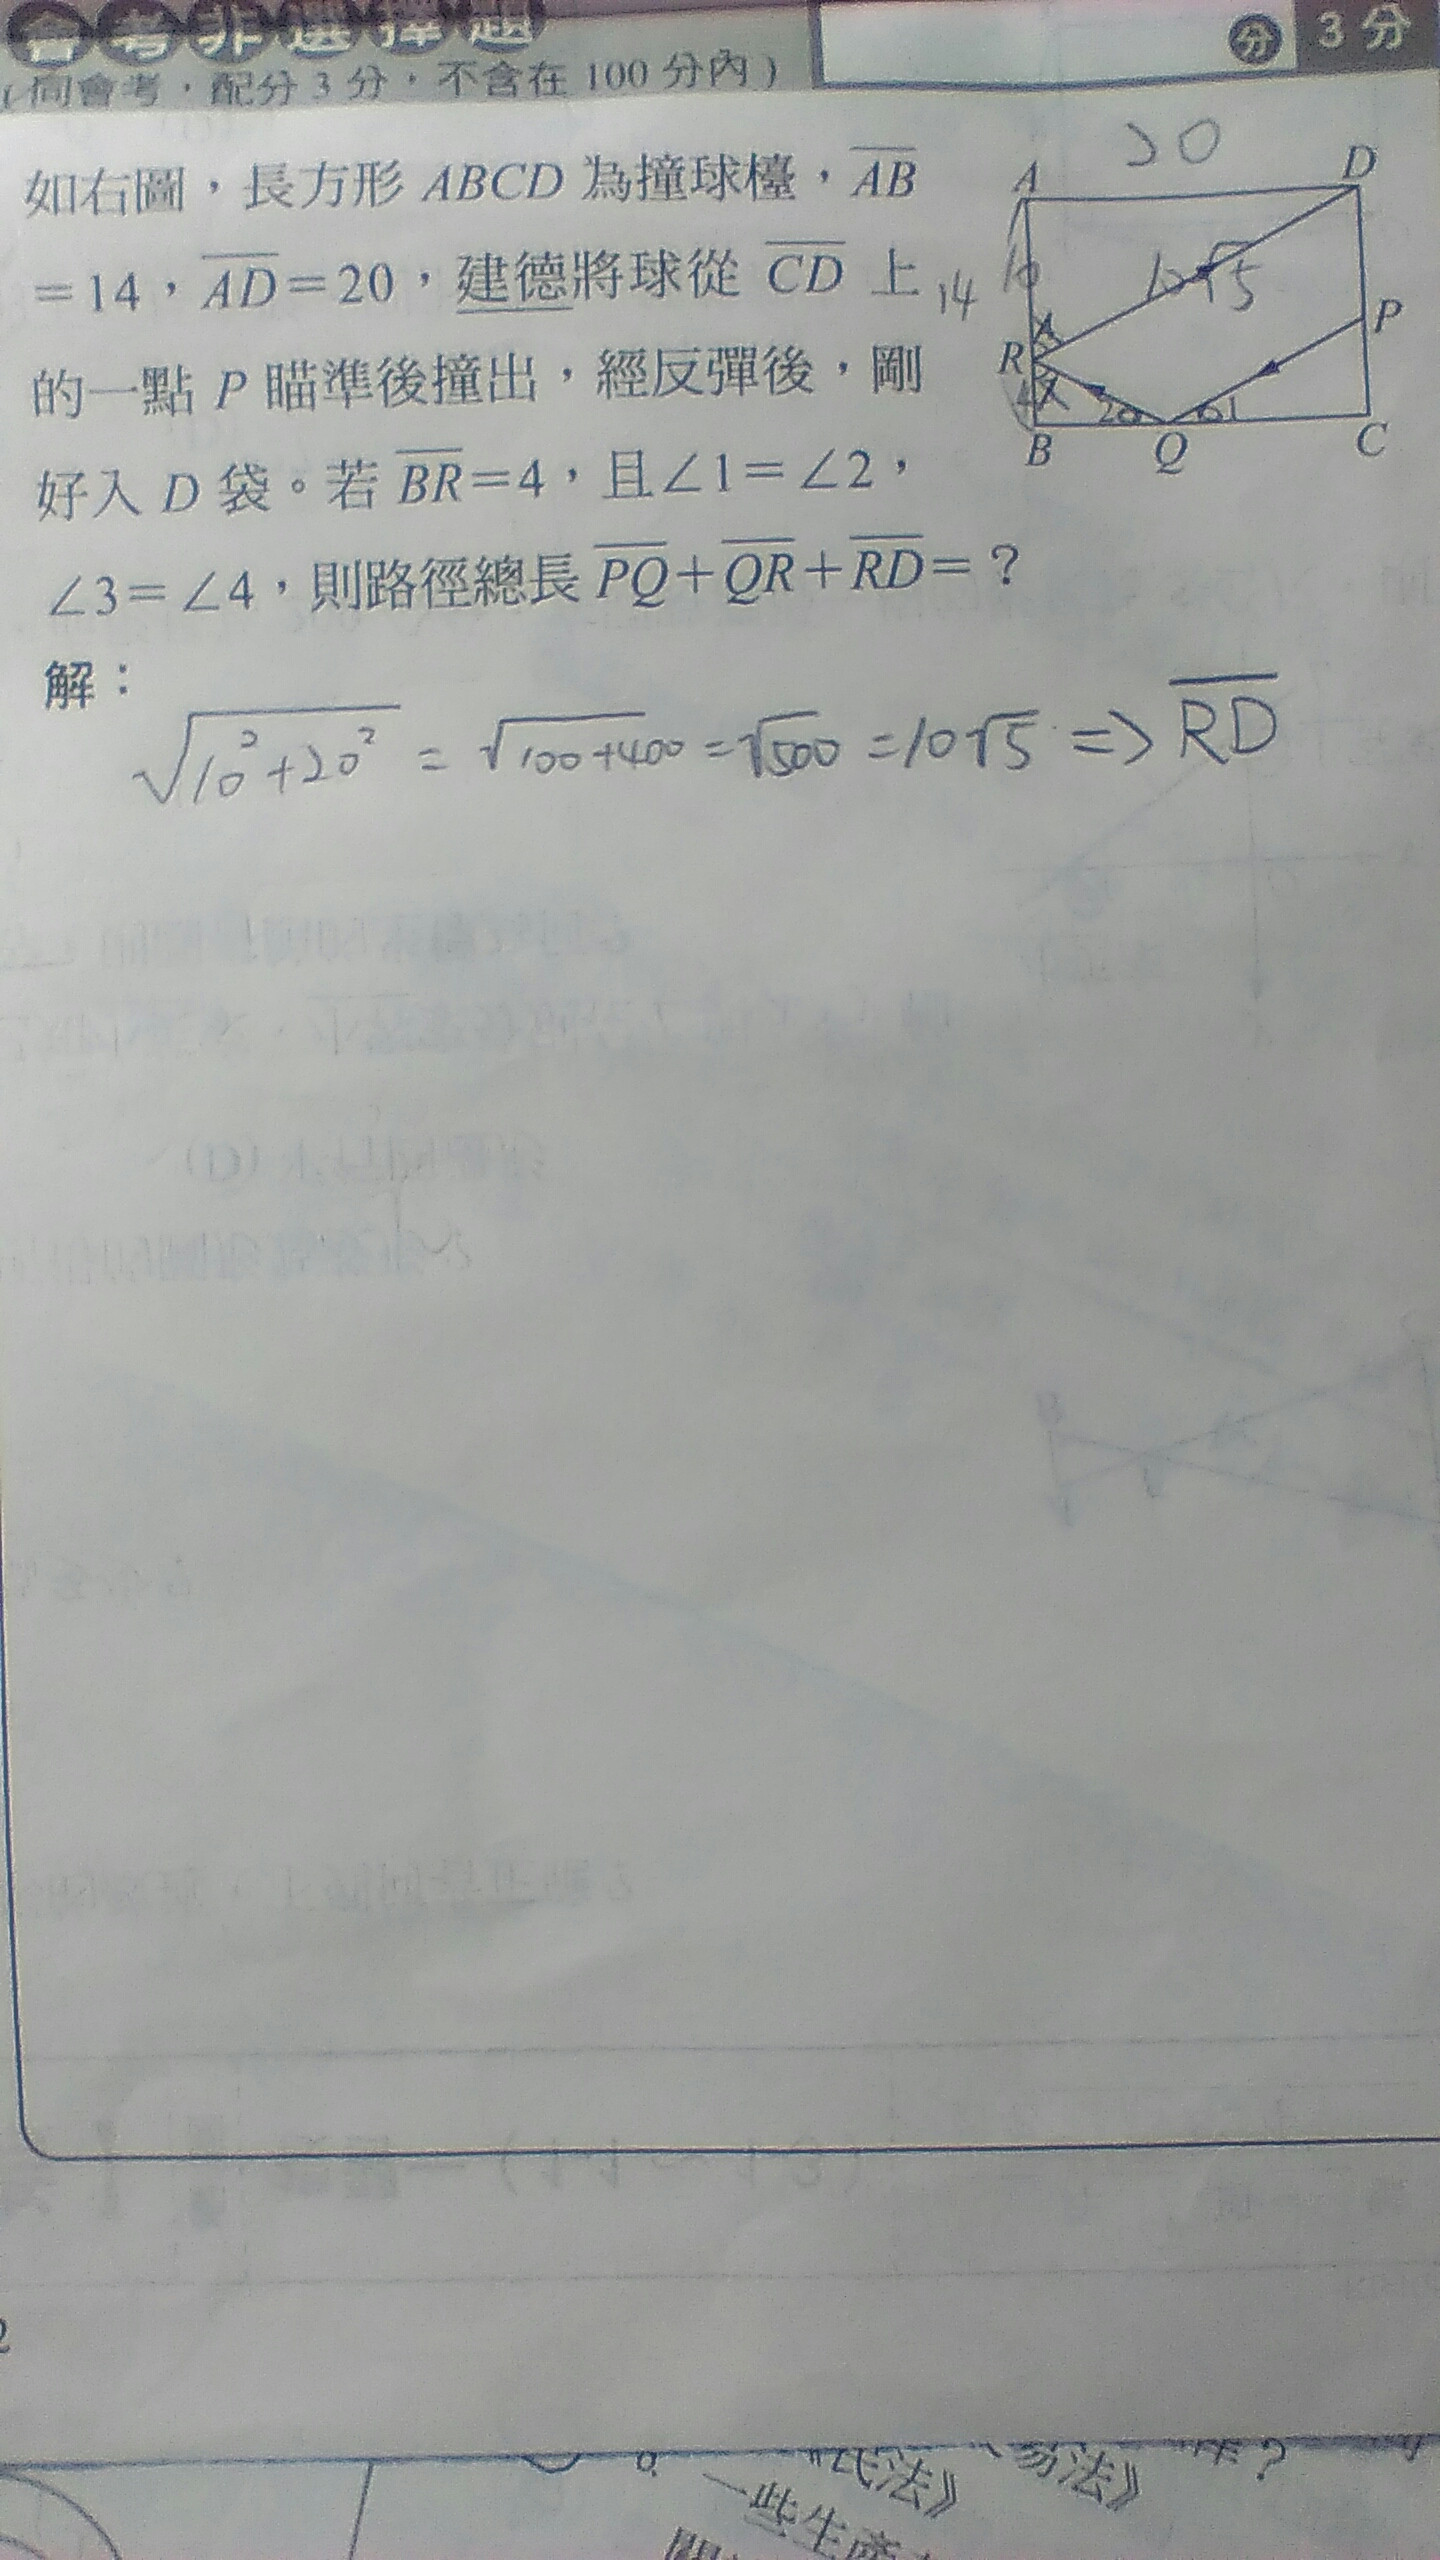 會考非選擇題
分 3分
(同會考，配分3分，不含在100分內)
如右圖，長方形ABCD為撞球檯，AB
=14，AD=20，建德將球從 CD 上
的一點 P 瞄準後撞出，經反彈後，剛
好入 D 袋。若 BR=4，且∠1=∠2，
∠3=∠4，則路徑總長 PQ+QR+RD=？
20
A D
14 10 10√5
P
R
4
2 1
B Q C
解：
√10²+20² = √100+400 = √500 = 10√5 => RD
2